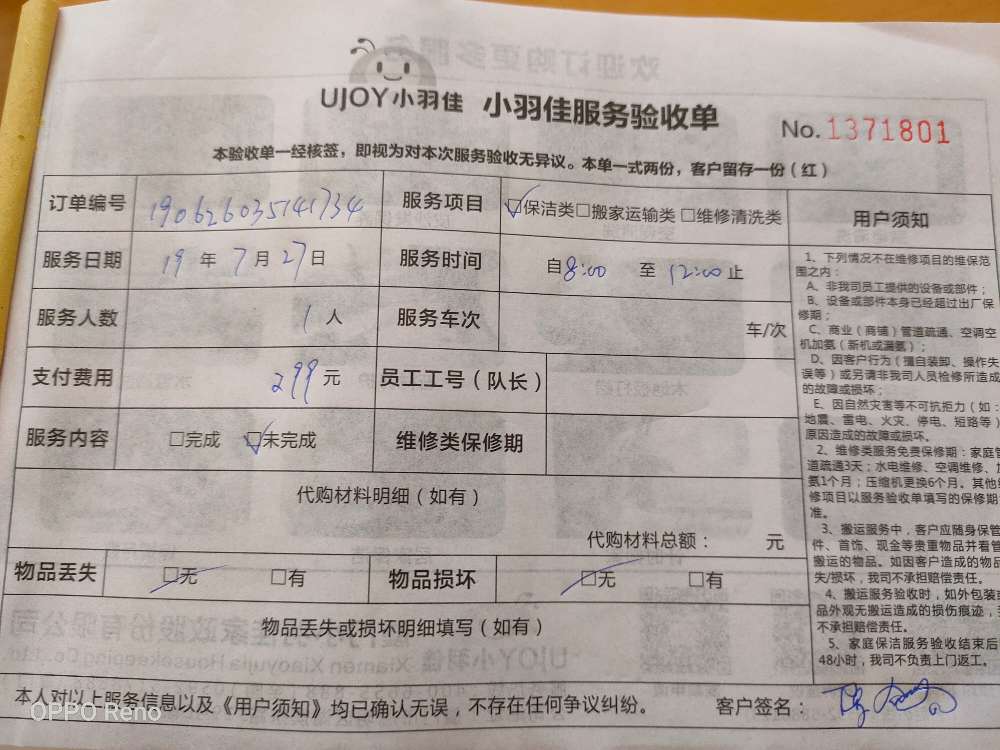 UJOY小羽佳 小羽佳服务验收单
No. 1371801
本验收单一经核签，即视为对本次服务验收无异议。本单一式两份，客户留存一份（红）
订单编号 190626035141734 服务项目 ☑保洁类☐搬家运输类 ☐维修清洗类
服务日期 19 年 7 月 27 日 服务时间 自8:00 至 12:00止
服务人数 1 人 服务车次 车/次
支付费用 299 元 员工工号（队长）
服务内容 ☐完成 ☑未完成 维修类保修期
代购材料明细（如有）
代购材料总额： 元
物品丢失 ☑无 ☐有 物品损坏 ☑无 ☐有
物品丢失或损坏明细填写（如有）
本人对以上服务信息以及《用户须知》均已确认无误，不存在任何争议纠纷。 客户签名：
用户须知
1、下列情况不在维修项目的维保范
围之内：
A、非我司员工提供的设备或部件；
B、设备或部件本身已经超过出厂保
修期；
C、商业（商铺）管道疏通、空调空
机加氨（新机或漏氨）；
D、因客户行为（擅自装卸、操作失
误等）或另请非我司人员检修所造成
的故障或损坏；
E、因自然灾害等不可抗拒力（如：
地震、雷电、火灾、停电、短路等）
原因造成的故障或损坏。
2、维修类服务免费保修期：家庭管
道疏通3天；水电维修、空调维修、加
氨1个月；压缩机更换6个月。其他
修项目以服务验收单填写的保修期
准。
3、搬运服务中，客户应随身保管
件、首饰、现金等贵重物品并看管
搬运的物品。如因客户造成的物品
失/损坏，我司不承担赔偿责任。
4、搬运服务验收时，如外包装或
品外观无搬运造成的损伤痕迹，我
不承担赔偿责任。
5、家庭保洁服务验收结束后
48小时，我司不负责上门返工。
OPPO Reno